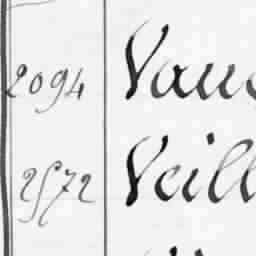 2094 Vau
2572 Veill